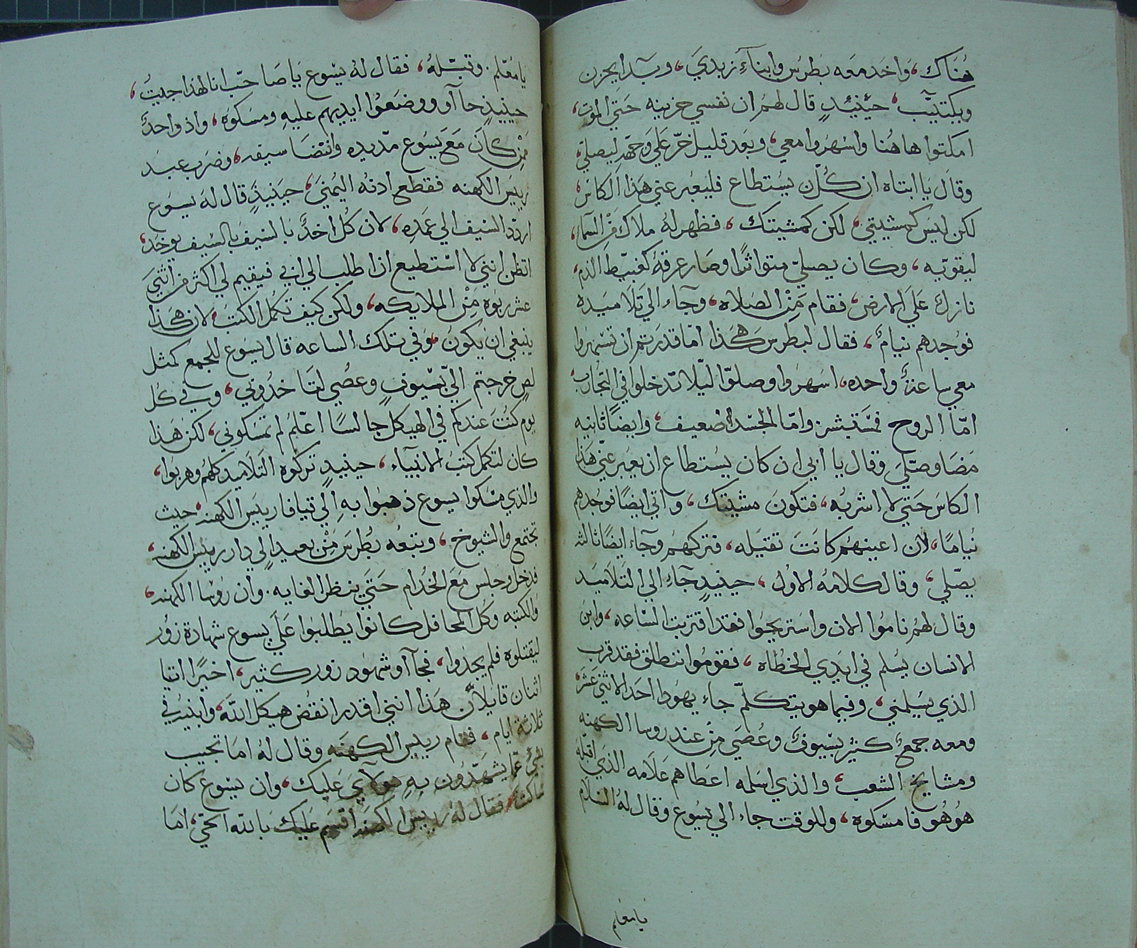 هُنَاك، واخد معه بطرس وابناء زبدي، وبدا يحزن
ويكتئب، حينئيدٍ قال لهم ان نفسي حزينه حتى الموت،
امكتوا هاهُنا واسْهروا معي، وبَعد قليل خرّ علي وجهه ليصلي،
وقال يا ابتاه ان كُل يسُتطاع فليعبر عني هَذا الكاس
لكن ليس كمشيتي، لكن كمشيتك، فظهر لهُ ملاك من السما،
ليقويه، وكان يصلي متواترًا وصار عرقهُ كغبيط الدم
نازلٌ عَلَي الارض، فقام من الصَلاه، وجاء الي تلاميده
فوجدهم نيامٌ، فقال لبطرس هكَذا اما قدرتم ان تسْهروا
معي ساعةً واحده، اسهروا وصلوا ليلا تدخلوا في التجارب
امّا الروح فمستبشر وامّا الجسد فضعيف، وايضًا تانيه
مَضَا وصلّي وقال يا ابي ان كان يسُتطاع ان يعبر عني هذا
الكاس حَتي لا اشربه، فتكون مشيتك، واتي ايضًا فوجدهم
نيامًا، لان اعينهم كانت تقيله، فتركهم وجاء ايضًا تالته
يصّلي، وقال كلامهُ الاول، حينيدٍ جاء الي التلاميد
وقال لهم ناموا الان واستريحوا فقد اقتربت السّاعه، وابن
الانسان يسُلم في ايدي الخطاه، فقوموا ننطلق فقد قرب
الذي يسَلمني، وفيما هو يتكلّم جاء يهودا احد الاتني عشر
ومعه جمعٌ كتير بسيوفٌ وعُصَي من عند روسا الكهنه
ومشايخ الشعب، والذي اسلمه اعطاهم علامه الذي اقبله
هُو هُو فامسَكوه، وللوقت جاء الي يسُوع وقال لهُ السَلام
يا معلم
يا معّلم وقبّله، فقال لهُ يسْوع يا صَاحب انا لهذا جيتُ،
حينيدٍ جآ أو ووضَعوا ايديهم عليه ومسكوه، واذ واحدٌ
ممن كان مَعَ يسُوع مدّ يده وانتضا سيفه، وضرَب عبد
رييس الكهنه فقطع ادنه اليُمني، حينيدٍ قال له يسوع
اردد السَيف الي غمده، لان كُل اخدٌ بالسَيف بالسَيف يوخد،
اتظن انني لا استطيع اذا طلب الي ابي فيقيم لي اكتر من اتني
عشر ربوه من الملايكه، ولكن كيف تكمل الكتب، لان هكذا
ينبغي ان يكون، وفي تلك الساعه قال يسوع للجمع كمثل
لصٍ خرجتم الي بسيوف وعصُي لتاخدوني، وفي كل
يوم كنتُ عندكم في الهيكل جالسًا اعّلم لم تمسكوني، لكن هذا
كان لتكمل كتب الانبياء، حينيدٍ تركوه التلاميد كلهم وهربوا،
والذي مسكوا يسوع ذهبوا به الي قيافا رييس الكهنه حيث
تجتمع والشيوخ، وتبعه بُطرس من بعيد الي دار رييس الكهنه،
فدخل وجلس مع الخدام حتي ينظر الغايه، وان روسا الكهنه،
والكتبه وكل المحافل كانوا يطلبوا علَي يسوع شهادة زور
ليقتلوه فلم يجدوا، فجاآو شهود زور كثير، اخيرًا اتيا
اتنان قايلان هَذا انني اقدر انقض هيكل الله، وابنيه في
تلاتة ايام، فقام رييس الكهَنه وقال له اما تجيب
بشيٍ عما يشهدون به هولاي عليك، وان يسوع كان
ساكتًا، فقال له رييس الكهنه اقسم عليك بالله الحي، اما